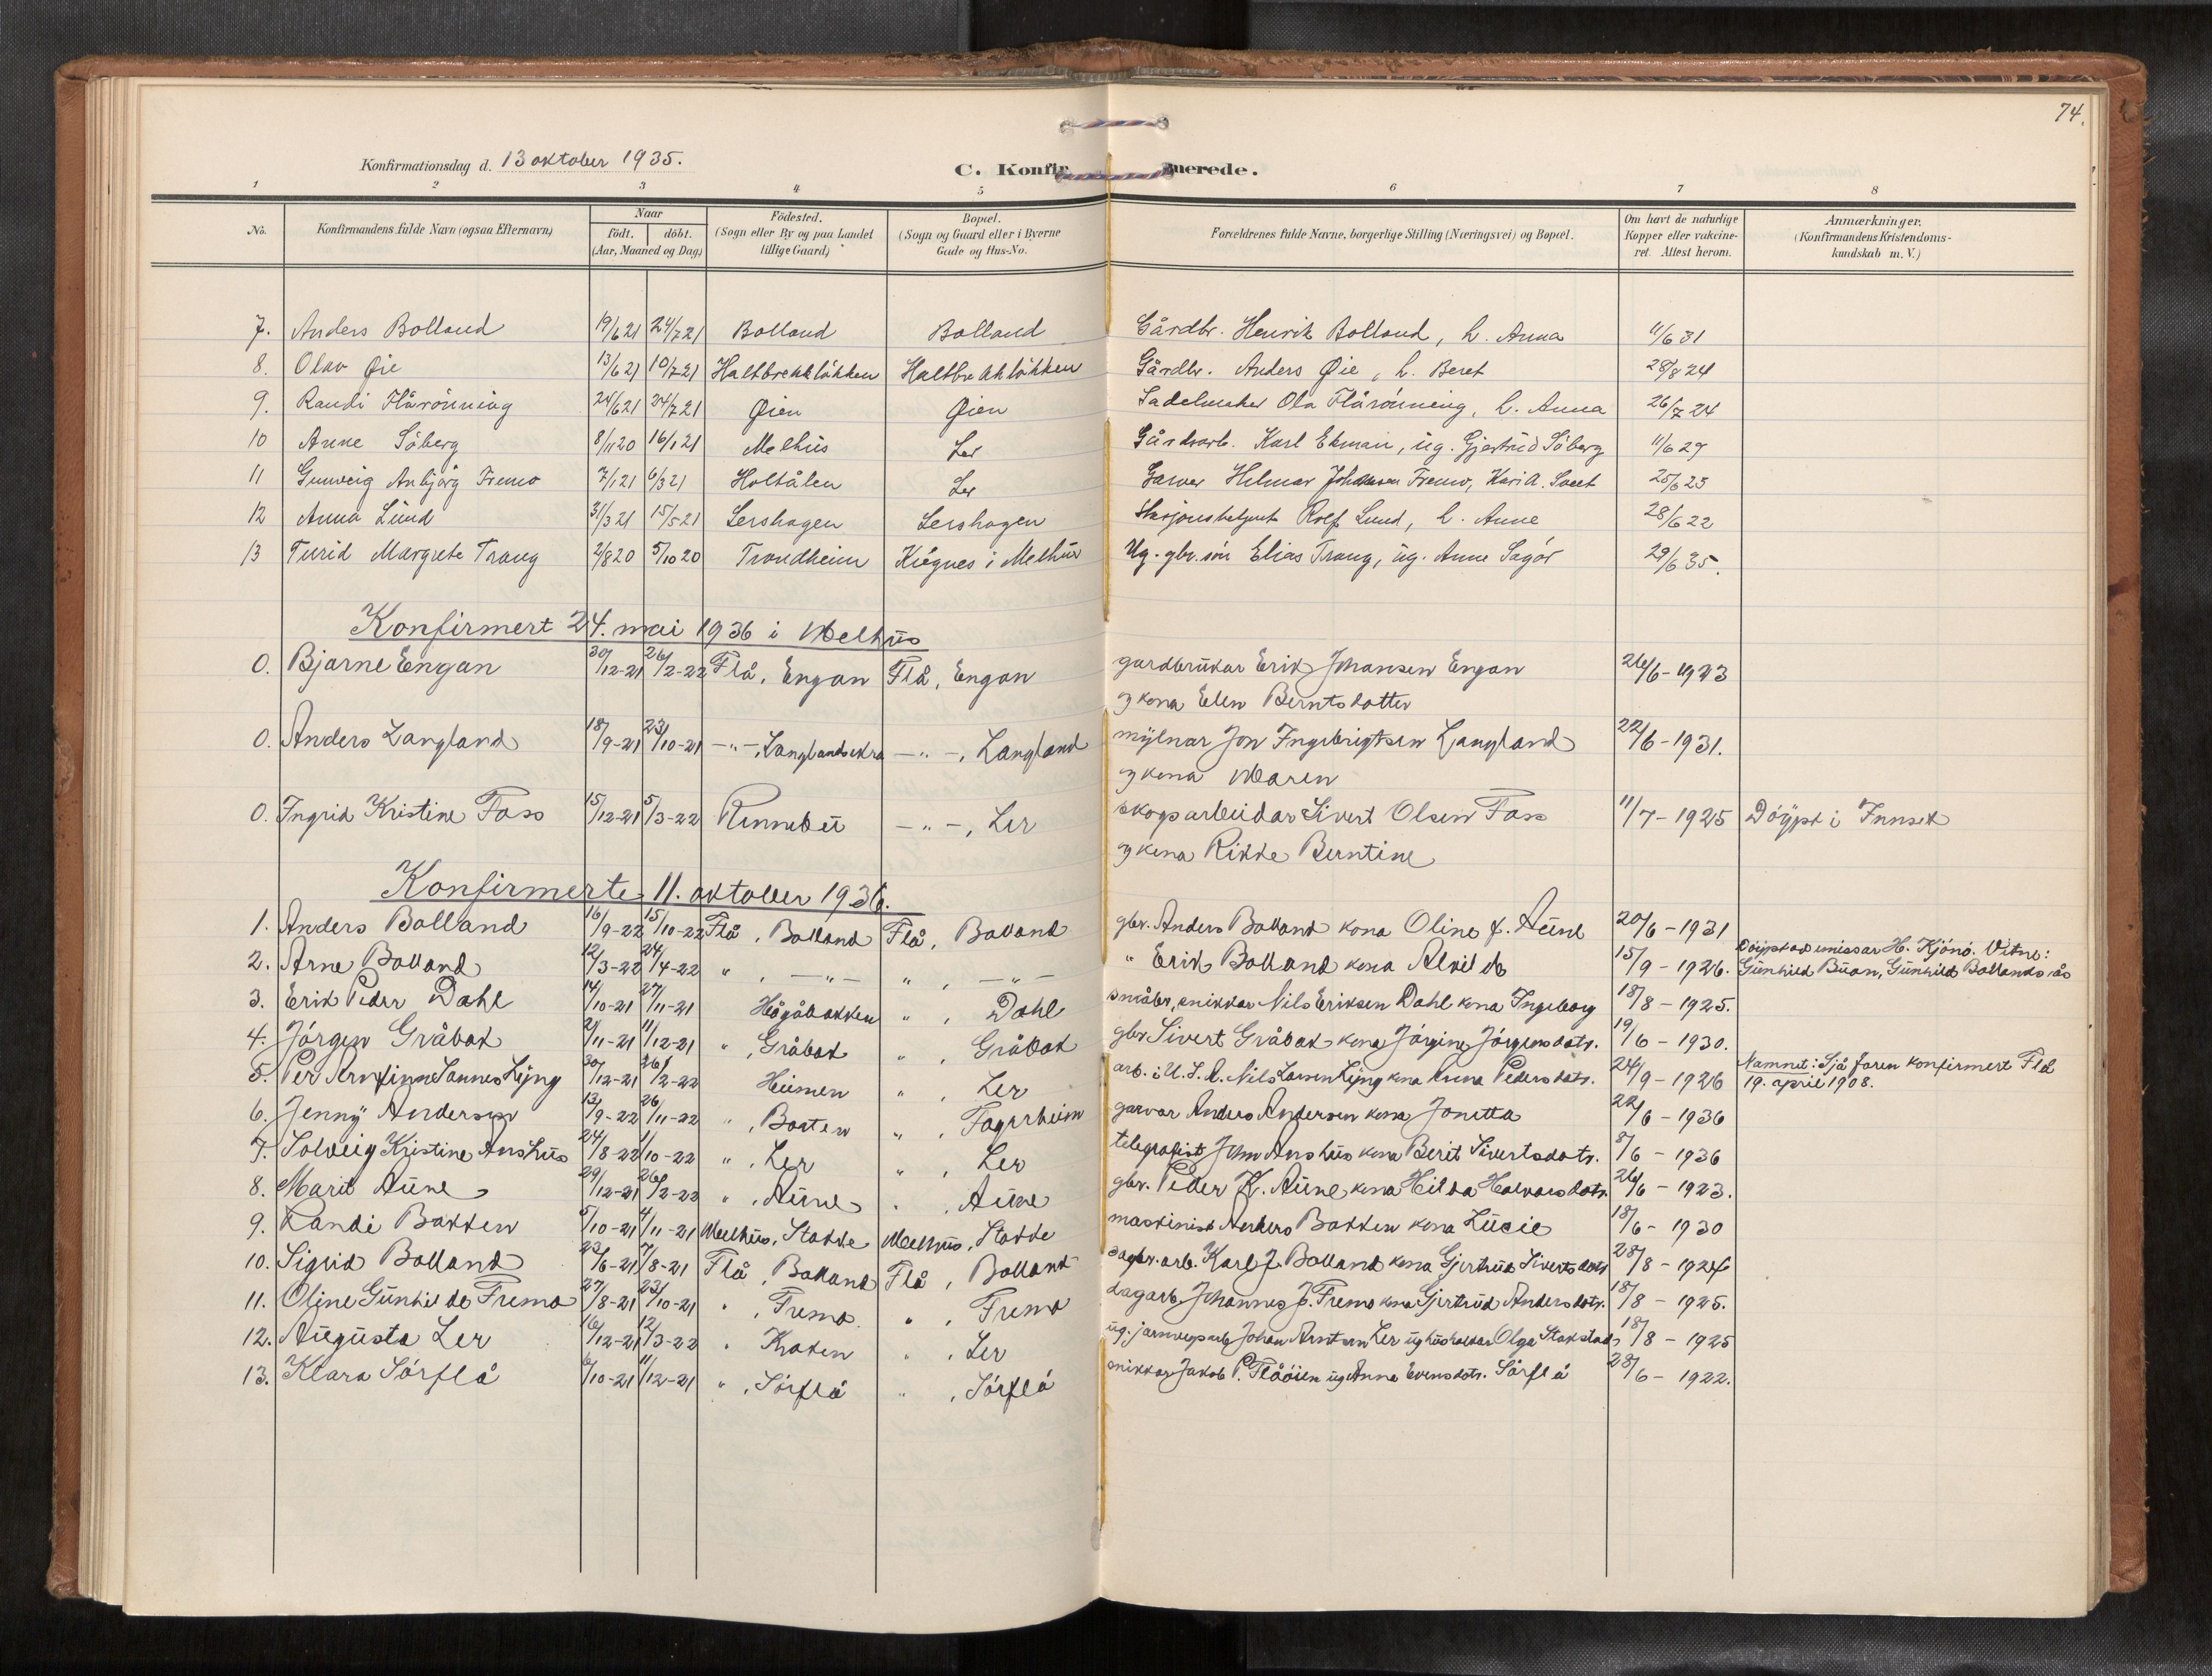 74.
Konfirmationsdag d. 13 oktober 1935.
C. Konfirmerede.
1 2 3 4 5 6 7 8
No. Konfirmandens fulde Navn (ogsaa Efternavn) Naar födt. döbt. (Aar, Maaned og Dag) Födested. (Sogn eller By og paa Landet tillige Gaard) Bopæl. (Sogn og Gaard eller i Byerne Gade og Hus-No. Forældrenes fulde Navne, borgerlige Stilling (Næringsvei) og Bopæl. Om havt de naturlige Kopper eller vakcineret. Attest herom. Anmærkninger. (Konfirmandens Kristendomskundskab m. V.)
7. Anders Bolland 19/6 21 24/7 21 Bolland Bolland Gårdbr. Henrik Bolland, h. Anna 11/6 31
8. Olav Øie 13/6 21 10/7 21 Haltbrekkløkken Haltbrekkløkken Gårdbr. Anders Øie, h. Beret 28/8 24
9. Randi Flårönning 24/6 21 24/7 21 Øien Øien Sadelmaker Ola Flårönning, h. Anna 26/7 24
10 Anne Söberg 8/11 20 16/1 21 Melhus Ler Gårdsarb. Karl Ekman, ug. Gjertrud Söberg 11/6 29
11 Gunveig Anbjörg Fremo 7/1 21 6/3 21 Holtålen Ler Garver Hilmar Johansen Fremo, Kari A. 25/6 25
12 Anna Lund 31/3 21 15/5 21 Lershagen Lershagen Stasjonsbetjent Rolf Lund, h. Anne 28/6 22
13 Turid Margrete Trang 2/8 20 5/10 20 Trondheim i Melhus Ug. gbr. sön Elias Trang, ug. Anne Sagör 29/6 35.
Konfirmert 24. mai 1936 i Melhus
0. Bjarne Engan 30/12-21 26/2-22 Flå, Engan Flå, Engan gardbrukar Erik Johansen Engan 26/6-1923
og kona Elen Berntsdotter
0. Anders Langland 18/9-21 23/10-21 -"-, Langlandsekra -"-, Langland mylnar Jon Ingebrigtsen Langland 22/6-1931.
og kona Maren
0. Ingrid Kristine Foss 15/12-21 5/3-22 Rennebu -"-, Ler skogsarbeidar Sivert Olsen Foss 11/7-1925 Döypt i Innset
og kona Rikke Berntine
Konfirmerte 11. oktober 1936.
1. Anders Bolland 16/9-22 15/10-22 Flå, Bolland Flå, Bolland gbr. Anders Bolland kona Oline f. Aune 20/6-1931
2. Arne Bolland 12/3-22 24/4-22 " , -"- " , -"- " Erik Bolland kona Alvilde 15/9-1926. Döypt av emissær H. Kjönö. Vitne: Gunhild Buan, Gunhild Bollandsås
3. Erik Peder Dahl 14/10-21 27/11-21 Högåbakken " , Dahl småbr. snikkar Nils Eriksen Dahl kona Ingeborg 18/8-1925.
4. Jörgen Gråbak 2/11-21 11/12-21 " , Gråbak " , Gråbak gbr Sivert Gråbak kona Jörgine Jörgensdotr. 19/6-1930.
5. Per Arnfinn Sannes Lyng 30/12-21 26/2-22 Heimen " , Ler arb. i U.S.A. Nils Larsen Lyng kona Anna Pedersdotr. 24/9-1926 Namnet: Sjå faren konfirmert Flå 19. april 1908.
6. Jenny Andersen 13/9-22 26/11-22 " , Borten " , Fagerheim garvar Anders Andersen kona Jonetta 22/6-1936
7. Solveig Kristine Anshus 24/8-22 1/10-22 " , Ler " , Ler telegrafist John Anshus kona Berit Sivertsdotr. 8/6-1936
8. Marit Aune 29/12-21 26/2-22 " , Aune " , Aune gbr. Peder K. Aune kona Hilda Halvorsdotr. 26/6-1923.
9. Randi Bakken 5/10-21 4/11-21 Melhus, Stokke Melhus, Stokke maskinist Anders Bakken kona Lucie 18/6-1930
10. Sigrid Bolland 23/6-21 7/8-21 Flå, Bolland Flå, Bolland arb. Karl J. Bolland kona Gjertrud Sivertsdotr 28/8-1924
11. Oline Gunhilde Fremo 27/8-21 23/10-21 " , Fremo. " , Fremo dagarb. Johannes J. Fremo kona Gjertrud Andersdotr. 18/8-1925.
12. Augusta Ler 16/12-21 12/3-22 " Kroken " , Ler ug. jarnvegsarb Johan Arntsen Ler ug hushaldar Olga Stokstad 18/8-1925
13. Klara Sörflå 6/10-21 11/12-21 " , Sörflå " , Sörflå snikkar Jakob P. Flåöien ug Anna Evensdotr. Sörflå 28/6-1922.